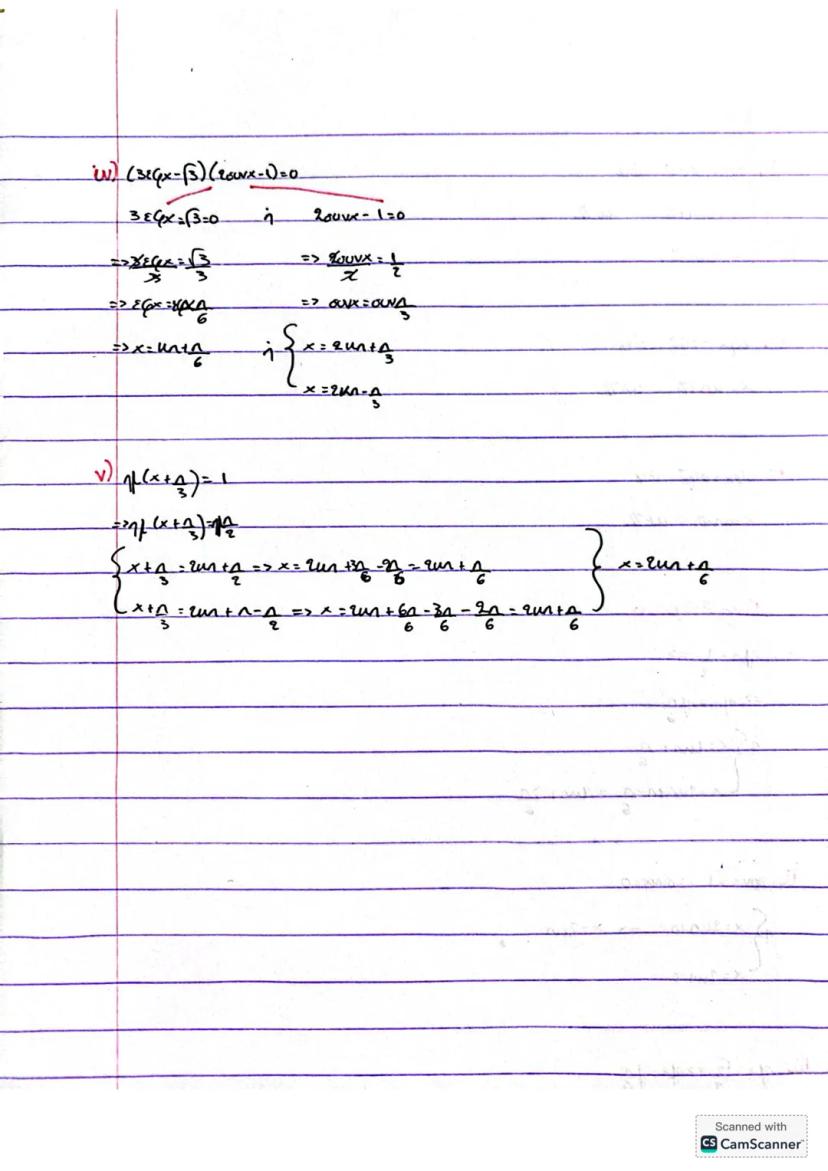 iv) (3εφx-√3)(2συνx-1)=0
3εφx=√3=0 ή 2συνx-1=0
=> 3εφx/3=√3/3 => 2συνx/2=1/2
=> εφx=εφπ/6 => συνx=συνπ/3
=> x=κπ+π/6 ή { x=2κπ+π/3
x=2κπ-π/3
v) ημ(x+π/3)=1
=>ημ(x+π/3)=ημπ/2
{ x+π/3=2κπ+π/2 => x=2κπ+3π/6-2π/6=2κπ+π/6 } x=2κπ+π/6
x+π/3=2κπ+π-π/2 => x=2κπ+6π/6-3π/6-2π/6=2κπ+π/6
Scanned with
CS CamScanner